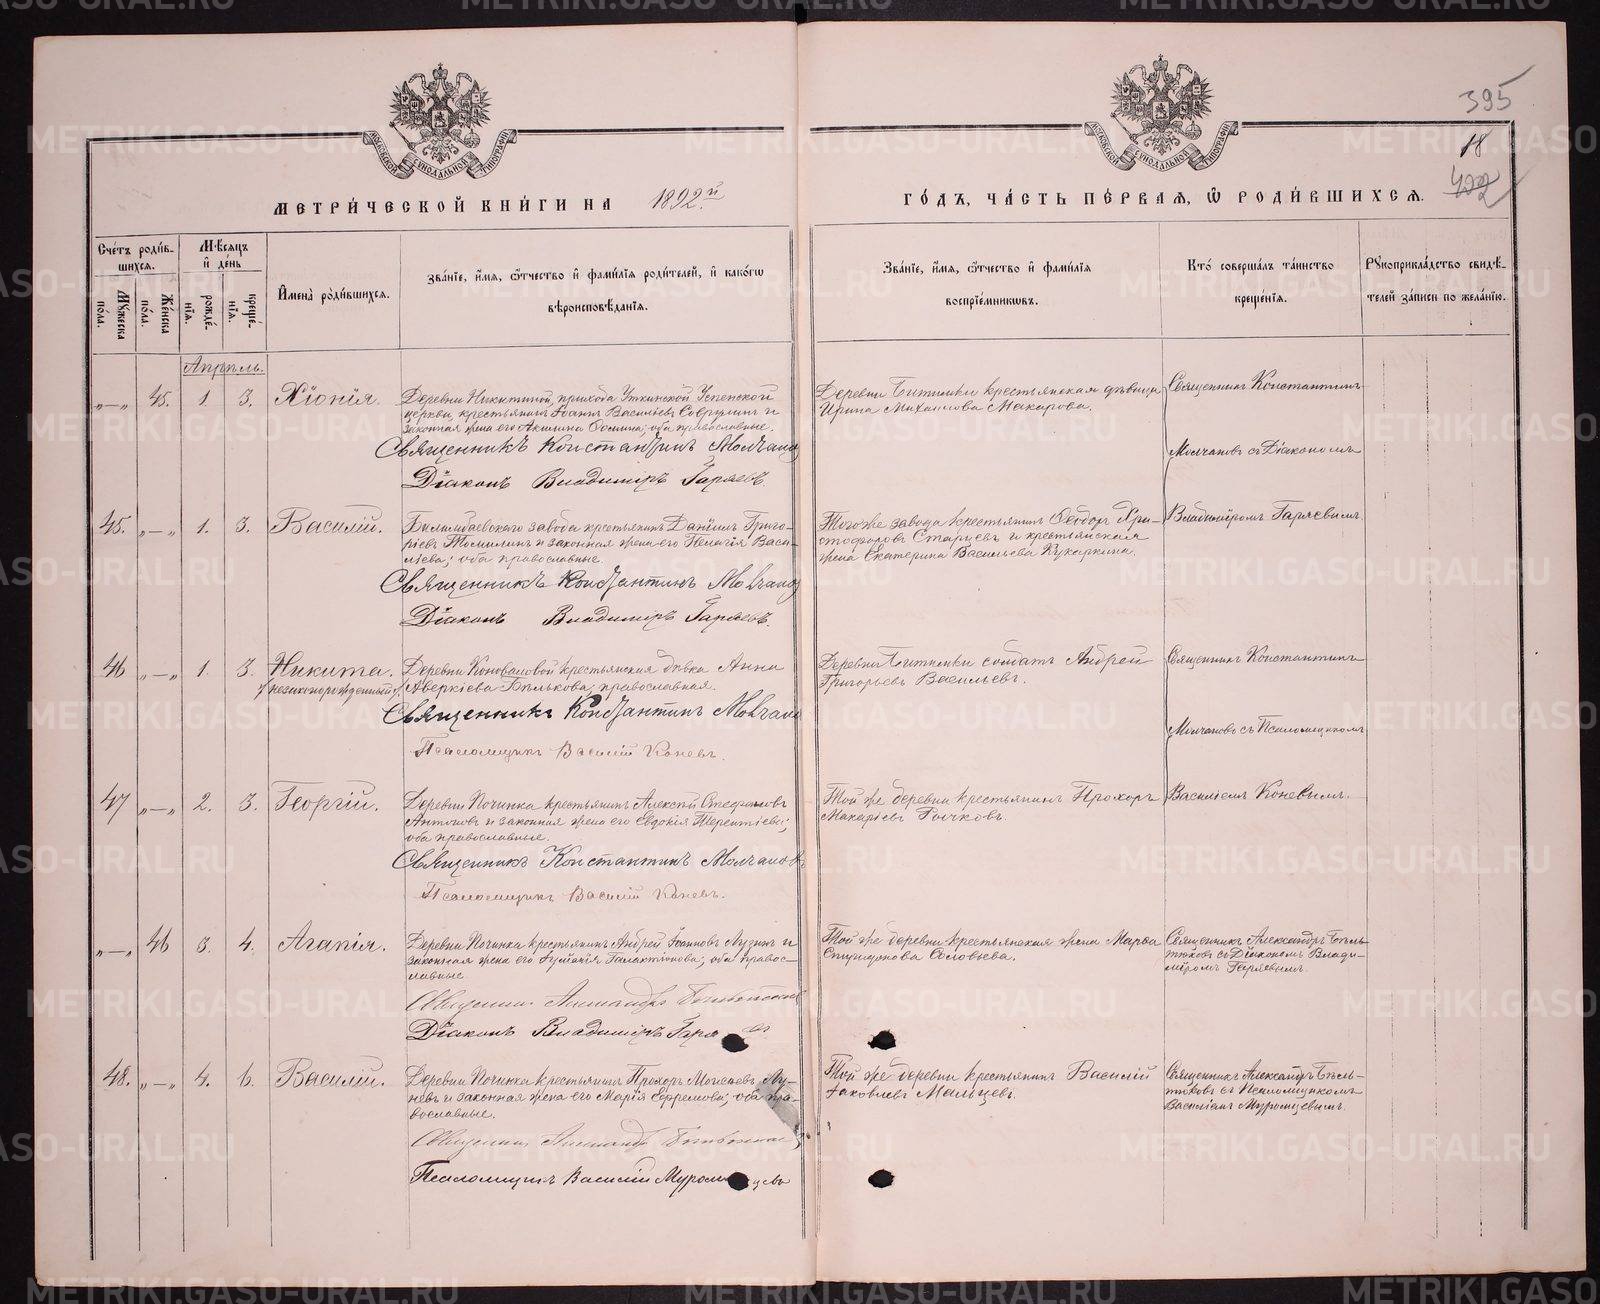 395
18
422
МОСКОВСКОЙ СѴНОДАЛЬНОЙ ТИПОГРАФІИ
МОСКОВСКОЙ СѴНОДАЛЬНОЙ ТИПОГРАФІИ
МЕТРИ́ЧЕСКОЙ КНИ́ГИ НА 1892й
ГО́ДЪ, ЧА́СТЬ ПЕ́РВАЯ, Ѿ РОДИ́ВШИХСЯ.
Сче́тъ роди́в-
шихся.
Му́жеска по́ла.
Же́нска по́ла.
Мѣ́сяцъ
и҆ де́нь
рожде́-
нїя.
креще́-
нїя.
И҆мена̀ роди́вшихся.
Зва́нїе, и҆́мя, ѻ҆́тчество и҆ фами́лїя роди́телей, и҆ како́гѡ
вѣроисповѣ́данїя.
Зва́нїе, и҆́мя, ѻ҆́тчество и҆ фами́лїя
воспрїе́мникѡвъ.
Кто̀ соверша́лъ та́инство
креще́нїя.
Рꙋкоприкла́дство свидѣ́-
телей за́писи по жела́нїю.
Апрѣль.
„—„ 45. 1. 3. Хіонія.
Деревни Никитиной, прихода Уткинской Успенской
церкви, крестьянинъ Іоаннъ Василіевъ и
законная жена его Акилина; оба православные.
Священникъ Константинъ Молчанов
Діаконъ Владиміръ Гаряевъ.
Деревни Битимки крестьянская дѣвица
Ирина Михаилова Макарова.
Священникъ Константинъ
Молчановъ съ Діакономъ
45. „—„ 1. 3. Василій.
Билимбаевскаго завода крестьянинъ Даніилъ Григо-
ріевъ Томилинъ и законная жена его Пелагія Васи-
ліева; оба православные.
Священникъ Константинъ Молчанов
Діаконъ Владиміръ Гаряевъ.
Того же завода крестьянинъ Ѳеодоръ Хри-
стофоровъ Старцевъ и крестьянская
жена Екатерина Васильева Кукаркина.
Владиміромъ Гаряевымъ
46 „—„ 1. 3. Никита.
незаконорожденный
Деревни Коноваловой крестьянская дѣвка Анна
Аверкіева Бѣлькова, православная.
Священникъ Константинъ Молчанов
Псаломщикъ Василій Коневъ.
Деревни Битимки солдатъ Андрей
Григорьевъ Васильевъ.
Священникъ Константинъ
Молчановъ съ Псаломщикомъ
47 „—„ 2. 3. Георгій.
Деревни Починка крестьянинъ Алексѣй Стефановъ
Антоновъ и законная жена его Евдокія Терентіева;
оба православные.
Священникъ Константинъ Молчановъ
Псаломщикъ Василій Коневъ.
Той же деревни крестьянинъ Прохоръ
Макаріевъ
Василіемъ Коневымъ.
„—„ 46 3. 4. Агапія.
Деревни Починка крестьянинъ Андрей Іоанновъ Лузинъ и
законная жена его Галактіонова; оба правос-
лавные.
Священникъ Александръ
Діаконъ Владиміръ Гаря
Той же деревни крестьянская жена Марѳа
Спиридонова Соловьева.
Священникъ Александръ Бѣль-
тюковъ съ Діакономъ Влади-
міромъ Гаряевымъ.
48. „—„ 4. 6. Василій.
Деревни Починка крестьянинъ Прохоръ Моисеевъ Лу-
невъ и законная жена его Марія Ефремова; оба пра-
вославные.
Священникъ Александръ
Псаломщикъ Василій Муромцевъ
Той же деревни крестьянинъ Василій
Іаковлевъ Мальцевъ.
Священникъ Александръ Бѣль-
тюковъ съ Псаломщикомъ
Василіемъ Муромцевымъ.
METRIKI.GASO-URAL.RU